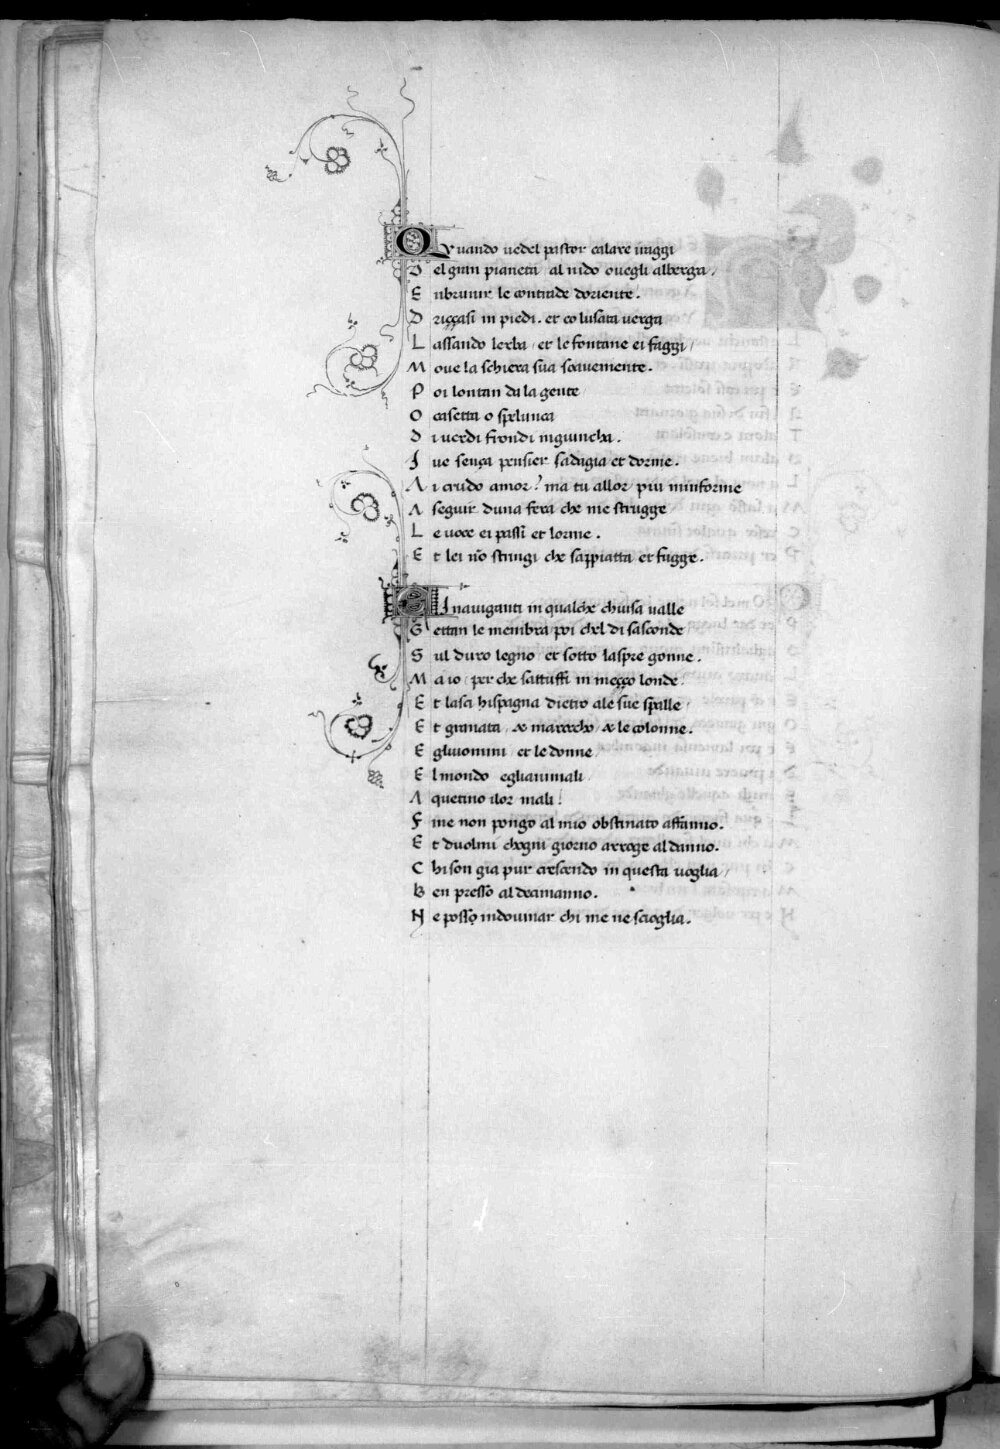 Quando uedel pastor calare iraggi
Del gran pianeta al nido ouegli alberga
E nbrunir le contrade doriente.
Driççasi in piedi. et co lusata uerga
Lassando lerba et le fontane ei faggi
Moue la schiera sua soauemente.
Poi lontan da la gente
O casetta o spelunca
Di uerdi frondi ingiuncha.
Iue sença pensier sadagia et dorme.
Ai crudo amor! ma tu allor piu minforme
A seguir duna fera che me strugge
Le uoce ei passi et lorme.
Et lei nõ stringi che sappiatta et fugge.
Ei nauiganti in qualche chiusa ualle
Gettan le membra poi chel di sasconde
Sul duro legno et sotto laspre gonne.
Ma io per che sattuffi in meçço londe
Et lasci hispagna dietro ale sue spalle
Et granata & marrocho & le colonne.
E gliuomini et le donne
El mondo egliammali
Aquetino ilor mali!
Fine non pongo al mio obstinato affanno.
Et duolmi chogni giorno arroge al danno.
Chi son gia pur crescendo in questa uoglia
Ben presso al decimanno.
Ne posso indouinar chi me ne scioglia.